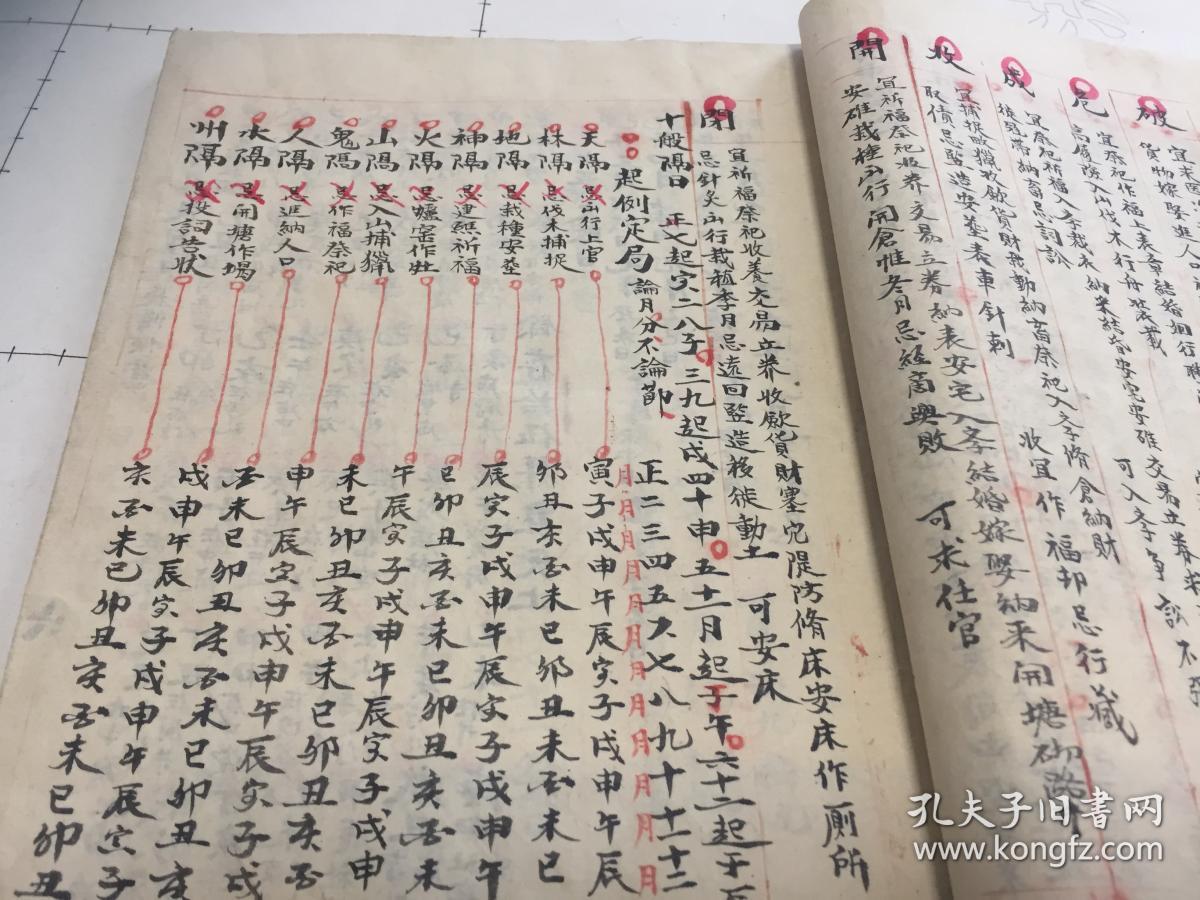 破
宜
貨物嫁娶進人口
危
宜祭祀作福上表章結婚姻行聘
高履險入山伐木行舟裝載
成
宜祭祀祈福入斈裁衣納采結婚安宅安碓交易立券
後冠帶納畜忌詞訟
可入斈爭訟不
收
宜捕捉畋獵收歛貨財栽動納畜祭祀入斈脩倉納財
取債忌監造安塟表車針刺
收宜作福却忌行藏
開
宜祈福祭祀收养交易立券納表安宅入斈結婚嫁娶納采開塘砌路
安碓栽種出行開倉惟冬月忌經商興敗
可求仕官
閉
宜祈福祭祀收養交易立券收歛貨財塞穴隄防脩床安床作厠所
忌針灸出行栽植季月忌遠回監造移徙動土
可安床
十般隔日 正七起寅二八子三九起戌四十申五十一月起于午六十二起于
起例定局 論月分不論節
正二三四五六七八九十十一十二
月月月月月月月月月月月月
天隔 忌出行上官 寅子戌申午辰寅子戌申午辰
林隔 忌伐木捕捉 卯丑亥酉未巳卯丑亥酉未巳
地隔 忌栽種安塟 辰寅子戌申午辰寅子戌申午
神隔 忌建醮祈福 巳卯丑亥酉未巳卯丑亥酉未
火隔 忌爐窑作灶 午辰寅子戌申午辰寅子戌申
山隔 忌入山捕獵 未巳卯丑亥酉未巳卯丑亥酉
鬼隔 忌作福祭祀 申午辰寅子戌申午辰寅子戌
人隔 忌進納人口 酉未巳卯丑亥酉未巳卯丑亥
水隔 忌開塘作塌 戌申午辰寅子戌申午辰寅子
州隔 忌投詞告狀 亥酉未巳卯丑亥酉未巳卯丑
孔夫子旧书网
www.kongfz.com